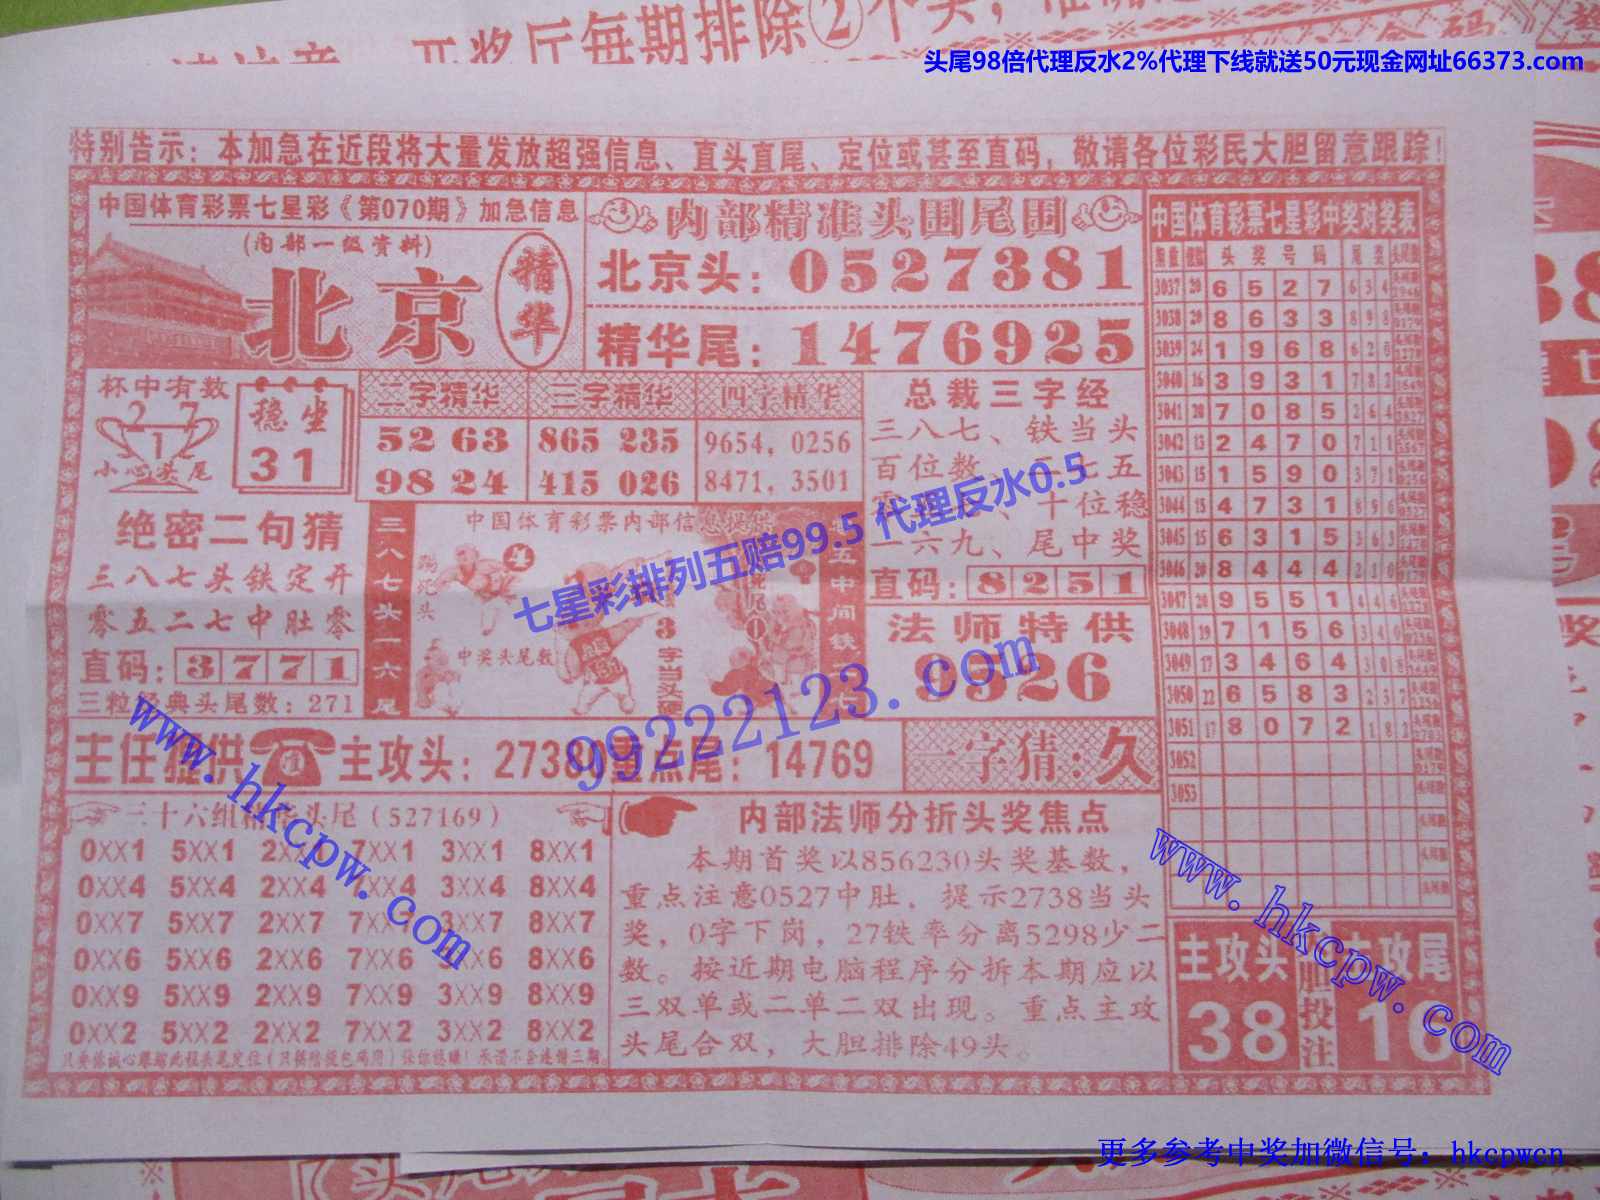 开奖厅每期排除②个头，
头尾98倍代理反水2%代理下线就送50元现金网址66373.com
特别告示：本加急在近段将大量发放超强信息、直头直尾、定位或甚至直码，敬请各位彩民大胆留意跟踪！
中国体育彩票七星彩《第070期》加急信息
(内部一级资料)
北京
精华
内部精准头围尾围
北京头：0527381
精华尾：1476925
杯中有数
2 7
1
小心头尾
稳坐
31
二字精华
52 63
98 24
三字精华
865 235
415 026
四字精华
9654，0256
8471，3501
总裁三字经
三八七、铁当头
百位数、二七五
十位稳
一六九、尾中奖
直码：8251
法师特供
9926
绝密二句猜
三八七头铁定开
零五二七中肚零
直码：3771
三粒经典头尾数：271
三八七头一六尾
中国体育彩票内部信息提供
4
中奖头尾数
3
字当头硬
五中间铁
主任提供
主攻头：2738
重点尾：14769
一字猜：久
三十六组精华头尾（527169）
0XX1 5XX1 2XX1 7XX1 3XX1 8XX1
0XX4 5XX4 2XX4 7XX4 3XX4 8XX4
0XX7 5XX7 2XX7 7XX7 3XX7 8XX7
0XX6 5XX6 2XX6 7XX6 3XX6 8XX6
0XX9 5XX9 2XX9 7XX9 3XX9 8XX9
0XX2 5XX2 2XX2 7XX2 3XX2 8XX2
内部法师分折头奖焦点
本期首奖以856230头奖基数，
重点注意0527中肚，提示2738当头
奖，0字下岗，27铁率分离5298少二
数。按近期电脑程序分拆本期应以
三双单或二单二双出现。重点主攻
头尾合双，大胆排除49头。
中国体育彩票七星彩中奖对奖表
头奖号码 尾奖
3037 20 6 5 2 7 6 3 4
3038 20 8 6 3 3 8 9 8
3039 24 1 9 6 8 6 2 0
3040 16 3 9 3 1 7 8 2
3041 20 7 0 8 5 2 6 4
3042 13 2 4 7 0 7 1 1
3043 15 1 5 9 0 3 7 1
3044 15 4 7 3 1
3045 15 6 3 1 5 3 6 3
3046 20 8 4 4 4 2 1 0
3047 20 9 5 5 1 4 4 6
3048 19 7 1 5 6 3 4 0
3049 17 3 4 6 4 3 0
3050 22 6 5 8 3 2 3 7
3051 17 8 0 7 2 1 8 2
3052
3053
主攻头
38
胆投注
主攻尾
16
七星彩排列五赔99.5 代理反水0.5
99222123.com
www.hkcpw.com
www.hkcpw.com
更多参考中奖加微信号：hkcpwcn